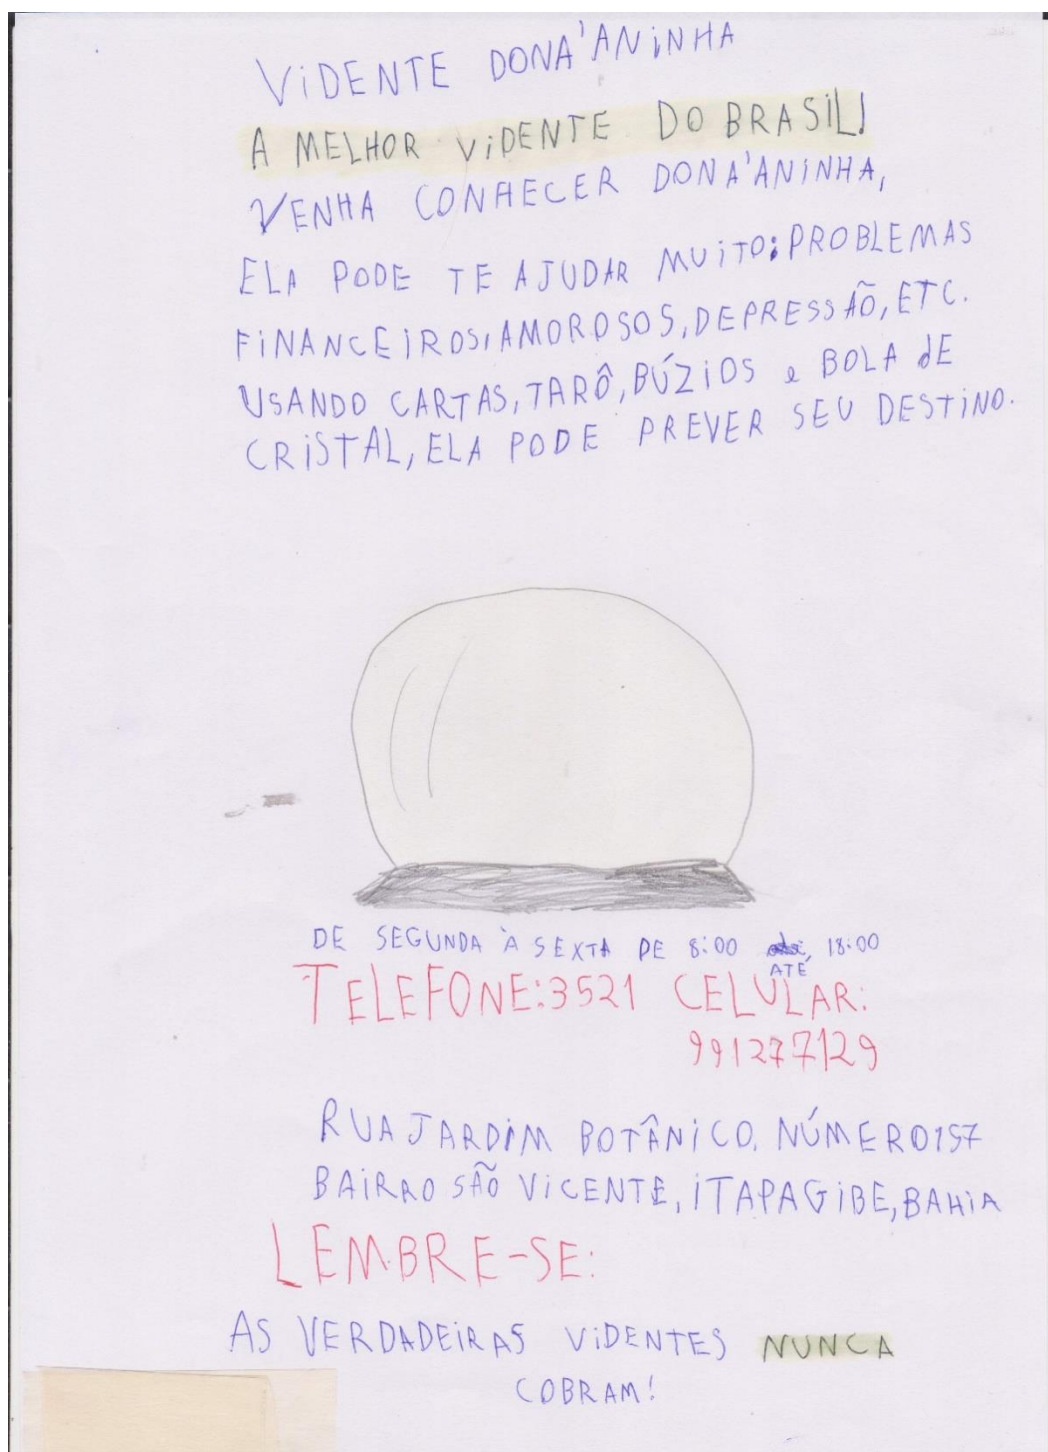 VIDENTE DONA'ANINHA
A MELHOR VIDENTE DO BRASIL!
VENHA CONHECER DONA'ANINHA,
ELA PODE TE AJUDAR MUITO: PROBLEMAS
FINANCEIROS, AMOROSOS, DEPRESSÃO, ETC.
USANDO CARTAS, TARÔ, BÚZIOS e BOLA dE
CRISTAL, ELA PODE PREVER SEU DESTINO.
DE SEGUNDA À SEXTA DE 8:00 ATÉ 18:00
TELEFONE: 3521 CELULAR:
991277129
RUA JARDIM BOTÂNICO, NÚMERO 157
BAIRRO SÃO VICENTE, ITAPAGIBE, BAHIA
LEMBRE-SE:
AS VERDADEIRAS VIDENTES NUNCA
COBRAM!